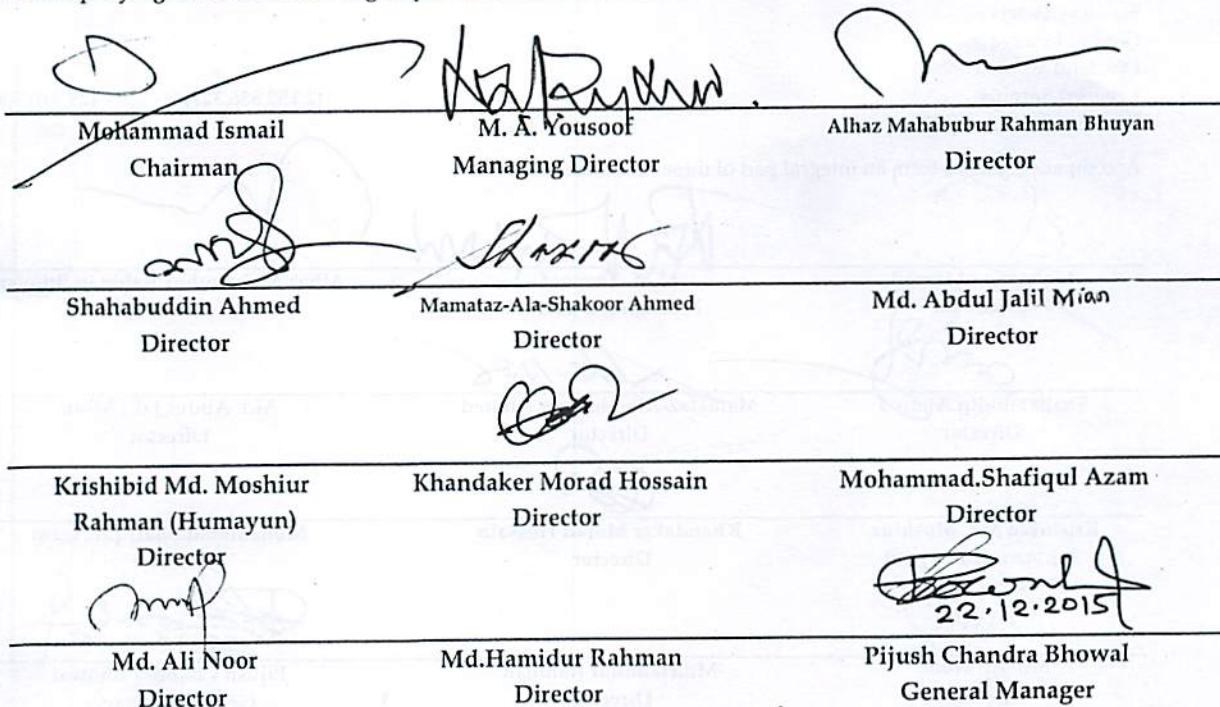 Mohammad Ismail
Chairman
M. A. Yousoof
Managing Director
Alhaz Mahabubur Rahman Bhuyan
Director
Shahabuddin Ahmed
Director
Mamataz-Ala-Shakoor Ahmed
Director
Md. Abdul Jalil Mian
Director
Krishibid Md. Moshiur
Rahman (Humayun)
Director
Khandaker Morad Hossain
Director
Mohammad.Shafiqul Azam
Director
22.12.2015
Md. Ali Noor
Director
Md.Hamidur Rahman
Director
Pijush Chandra Bhowal
General Manager